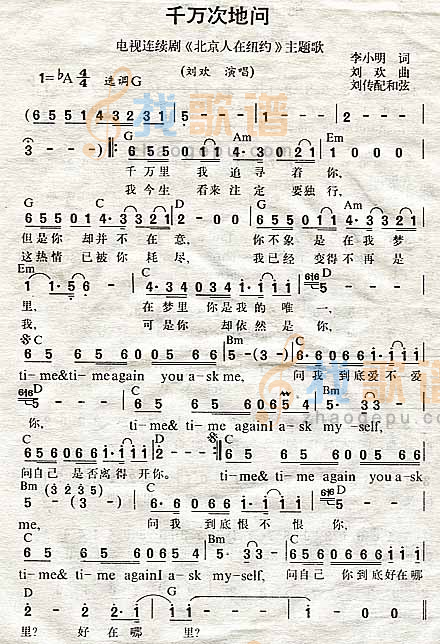 千万次地问
电视连续剧《北京人在纽约》主题歌
李小明 词
1=♭A 4/4 选调G (刘欢 演唱) 刘 欢 曲
刘传配和弦
(6 5 5 1 4 3 2 3 1 | 5 - - - | 1 - - - | 2 - - - |
G Am Em
3 - - - ) ‖: 6 5 5 0 1 1 | 4· 3 0 2 1 | 1 0 0 0 |
千万里 我 追寻着 你,
我今生 看来 注定 要独行,
G C D
6 5 5 0 1 4· 3 3 2 1 | 2 - 0 0 | 6 5 5 0 1 1 4· 3 3 2 1 |
但是你 却并不在意, 你不象是在我梦
这热情 已被你耗尽, 我已经变得不再是
Em C D
1 1 0 5· 6 - | 4· 3 4 0 3 4 0 1· 1 1 | 616 5 - - - |
里, 在梦里 你是我的唯一,
我, 可是你 却依然是你,
C Bm C
6 5 6 5 6 0 5 5 6 6 | 5 - (3 - ) | 6· 6 0 6 6 1· 1 1 1 |
ti-me&ti-me again you a-sk me, 问我到底爱不爱
D C Bm
616 5 - - - | 6 5 6 5 6 0 6 5 | 4· 5· 3 3 |
你, ti-me& ti-me againI a-sk my-self,
C D G
6 5 6 0 6 6 1· 1 1 1 | 2 - - - :‖ 6 5 6 5 6 0 5 5 6 6 |
问自己 是否离得开你. ti-me& ti-me again you a-sk
Bm C D
5 - (3· 2 3 5) | 6· 6 0 6 6 1· 1 1 1 | 616 5 - - - |
me, 问我 到底恨不恨 你,
C Bm C
6 5 6 5 6 0 6 5 | 4· 5· 3 3 | 6 5 6 0 6 6 1· 1 1 1 |
ti-me& ti-me againI a-sk my-self, 问自己 你到底好在哪
D G
2 - 2 - | 2 - 2· 1 | 1 - - - | 1 0 0 0 ‖
里? 好 在哪 里?